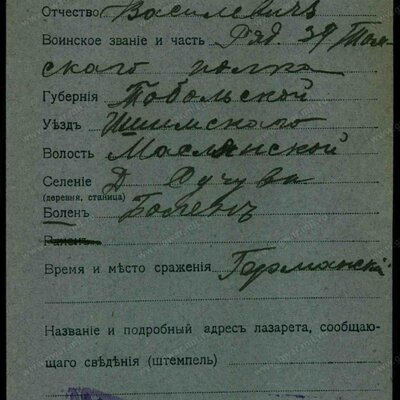 Отчество Василевичъ
Воинское званіе и часть Ряд 39 Том-
ского полка
Губернія Тобольской
Уѣздъ Ишимского
Волость Маслянской
Селеніе Д
(деревня, станица)
Боленъ Боленъ
Раненъ
Время и мѣсто сраженія Германский
Названіе и подробный адресъ лазарета, сообщаю-
щаго свѣдѣнія (штемпель)